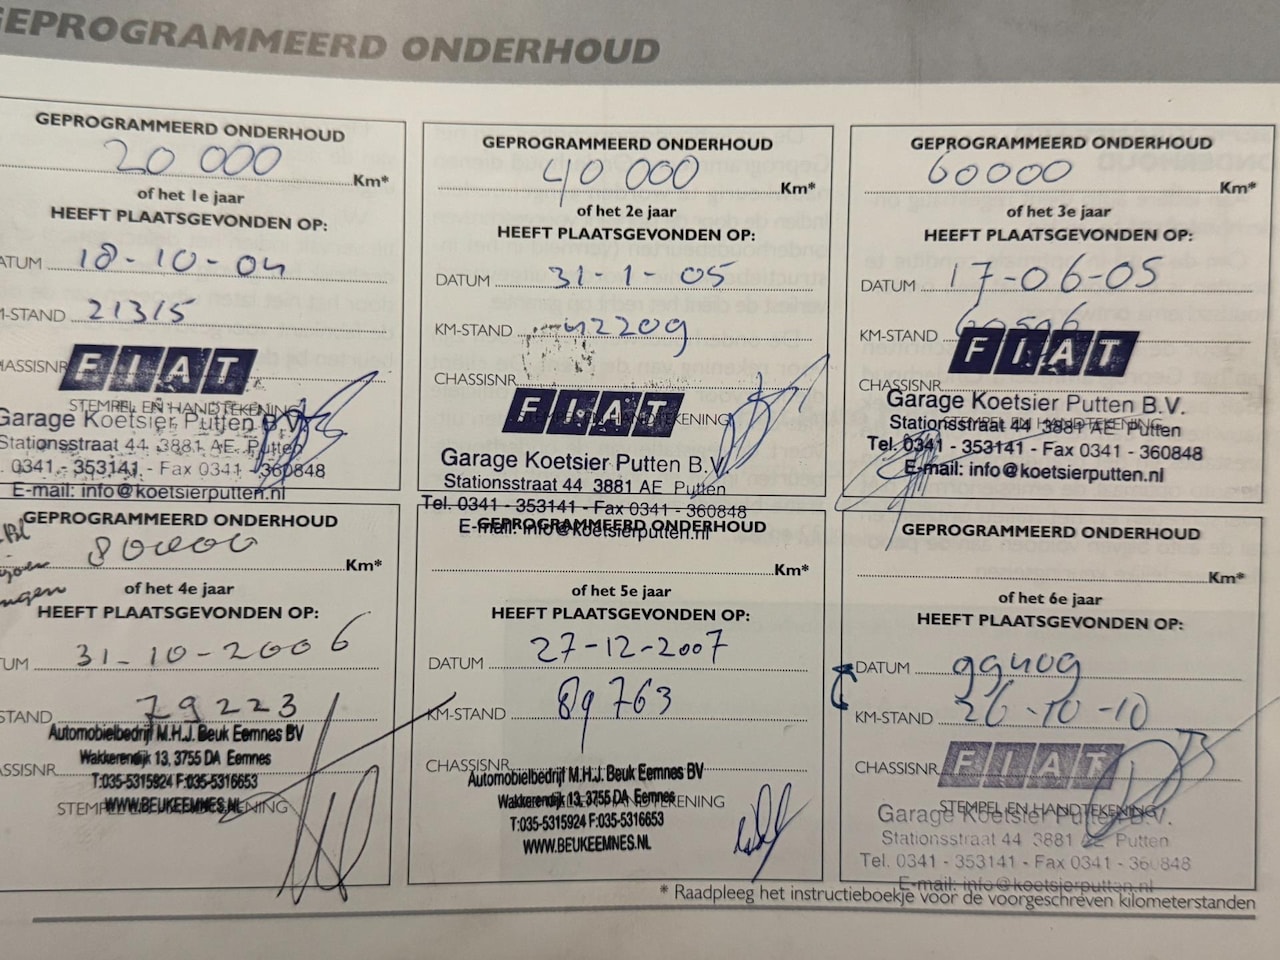 GEPROGRAMMEERD ONDERHOUD
GEPROGRAMMEERD ONDERHOUD
20 000 Km*
of het 1e jaar
HEEFT PLAATSGEVONDEN OP:
ATUM 18-10-04
M-STAND 21315
HASSISNR
FIAT
STEMPEL EN HANDTEKENING
Garage Koetsier Putten B.V.
Stationsstraat 44 3881 AE Putten
. 0341 - 353141 - Fax 0341 - 360848
E-mail: info@koetsierputten.nl
GEPROGRAMMEERD ONDERHOUD
40 000 Km*
of het 2e jaar
HEEFT PLAATSGEVONDEN OP:
DATUM 31-1-05
KM-STAND 42209
CHASSISNR
FIAT
STEMPEL EN HANDTEKENING
Garage Koetsier Putten B.V.
Stationsstraat 44 3881 AE Putten
Tel. 0341 - 353141 - Fax 0341 - 360848
E-mail: info@koetsierputten.nl
GEPROGRAMMEERD ONDERHOUD
60000 Km*
of het 3e jaar
HEEFT PLAATSGEVONDEN OP:
DATUM 17-06-05
KM-STAND
CHASSISNR
FIAT
Garage Koetsier Putten B.V.
STEMPEL EN HANDTEKENING
Stationsstraat 44 3881 AE Putten
Tel. 0341 - 353141 - Fax 0341 - 360848
E-mail: info@koetsierputten.nl
GEPROGRAMMEERD ONDERHOUD
80000 Km*
of het 4e jaar
HEEFT PLAATSGEVONDEN OP:
TUM 31-10-2006
STAND 79223
ASSISNR
Automobielbedrijf M.H.J. Beuk Eemnes BV
Wakkerendijk 13, 3755 DA Eemnes
T:035-5315924 F:035-5316653
WWW.BEUKEEMNES.NL
STEMPEL EN HANDTEKENING
GEPROGRAMMEERD ONDERHOUD
Km*
of het 5e jaar
HEEFT PLAATSGEVONDEN OP:
DATUM 27-12-2007
KM-STAND 89763
CHASSISNR
Automobielbedrijf M.H.J. Beuk Eemnes BV
Wakkerendijk 13, 3755 DA Eemnes
STEMPEL EN HANDTEKENING
T:035-5315924 F:035-5316653
WWW.BEUKEEMNES.NL
GEPROGRAMMEERD ONDERHOUD
Km*
of het 6e jaar
HEEFT PLAATSGEVONDEN OP:
DATUM 99409
KM-STAND 26-10-10
CHASSISNR
FIAT
STEMPEL EN HANDTEKENING
Garage Koetsier Putten B.V.
Stationsstraat 44 3881 AE Putten
Tel. 0341 - 353141 - Fax 0341 - 360848
E-mail: info@koetsierputten.nl
* Raadpleeg het instructieboekje voor de voorgeschreven kilometerstanden